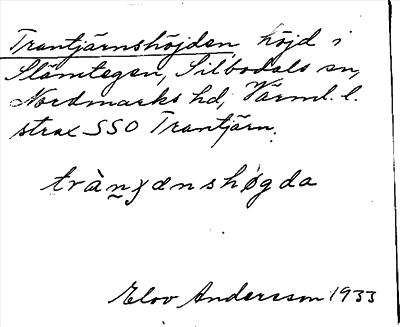 Trantjärnshöjden, höjd i
Slämtegen, Silbodals sn,
Nordmarks hd, Värml. l.
strax SSO Trantjärn.
tràṉjænshøgda
Elov Andersson 1933